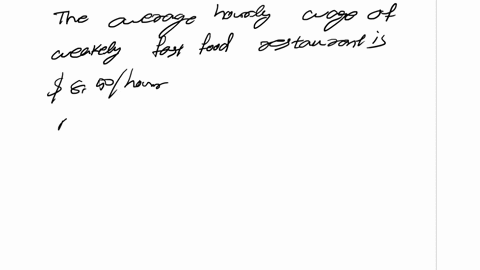 The average hourly wage of
weakely fast food restaurant is
$ 6.50/hour